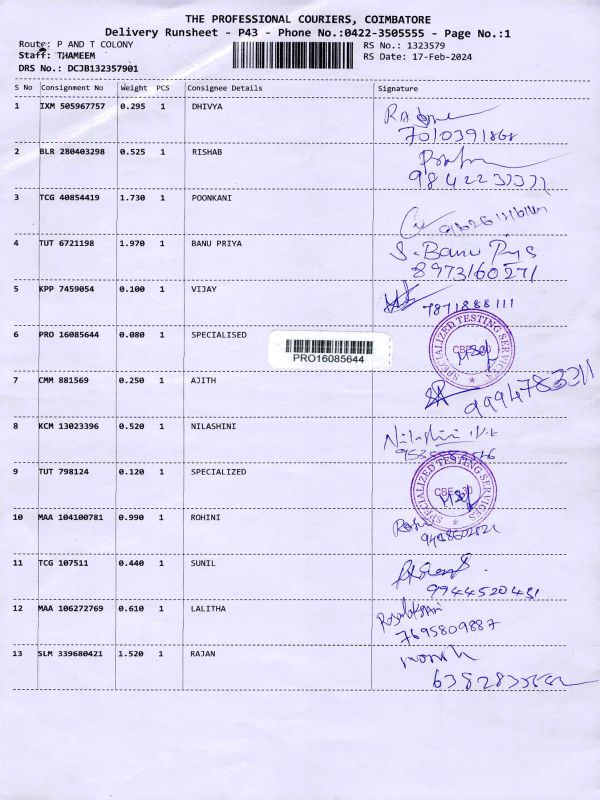 THE PROFESSIONAL COURIERS, COIMBATORE
Delivery Runsheet - P43 - Phone No.:0422-3505555 - Page No.:1
Route: P AND T COLONY RS No.: 1323579
Staff: THAMEEM RS Date: 17-Feb-2024
DRS No.: DCJB132357901
S No Consignment No Weight PCS Consignee Details Signature
1 IXM 505967757 0.295 1 DHIVYA
7010391868
2 BLR 280403298 0.525 1 RISHAB
3 TCG 40854419 1.730 1 POONKANI
4 TUT 6721198 1.970 1 BANU PRIYA S. Banu Priya
8973160271
5 KPP 7459054 0.100 1 VIJAY
7871888111
6 PRO 16085644 0.080 1 SPECIALISED
PRO16085644
SPECIALIZED TESTING SERVICES
7 CMM 881569 0.250 1 AJITH
9994783211
8 KCM 13023396 0.520 1 NILASHINI Nilashini
9 TUT 798124 0.120 1 SPECIALIZED
SPECIALIZED TESTING SERVICES
CBE-30
10 MAA 104100781 0.990 1 ROHINI
11 TCG 107511 0.440 1 SUNIL
9944520431
12 MAA 106272769 0.610 1 LALITHA
7695809887
13 SLM 339680421 1.520 1 RAJAN